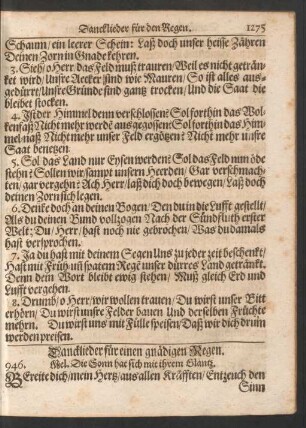 Dancklieder für den Regen. 1275
Schaum/ein leerer Schein: Laß doch unser heisse Zähren
Deinen Zorn in Gnade kehren.
3. Sieh/o Herr das Feld muß trauren/Weil es nicht geträn-
ket wird/Unsre Aecker sind wie Mauren/So ist alles aus-
gedürrt/Unsre Gründe sind gantz trocken/Und die Saat die
bleibet stocken.
4. Ist der Himmel denn verschlossen? Sol forthin das Wol-
kenfaß Nicht mehr werdē ausgegossen? Sol forthin das Him-
mel-naß Nicht mehr unser Feld ergötzen? Nicht mehr unsre
Saat benetzen.
5. Sol das Land nur Eysen werden? Sol das Feld nun öde
stehn? Sollen wir sampt unsern Heerden/Gar verschmach-
ten/gar vergehn? Ach Herr/laß dich doch bewegen/Laß doch
deinen Zorn sich legen.
6. Dencke doch an deinen Bogen/Den du in die Lufft gestellt/
Als du deinen Bund vollzogen Nach der Sündfluth erster
Welt: Du/Herr/hast noch nie gebrochen/Was du damals
hast versprochen.
7. Ja du hast mit deinem Segen Uns zu jeder zeit beschenkt/
Hast mit Früh uñ spatem Regē unser dürres Land getränkt.
Denn dein Wort bleibt ewig stehen/Muß gleich Erd und
Lufft vergehen.
8. Drumb/o Herr/wir wollen trauen/Du wirst unser Bitt
erhörn/Du wirst unsre Felder bauen Und derselben Früchte
mehrn. Du wirst uns mit Fülle speisen/Daß wir dich drum
werden preisen.
Dancklieder für einen gnädigen Regen.
946. Mel. Die Sonn hat sich mit ihrem Glantz.
BEreite dich/mein Hertz/aus allen Kräfften/Entzeuch den
Sinn